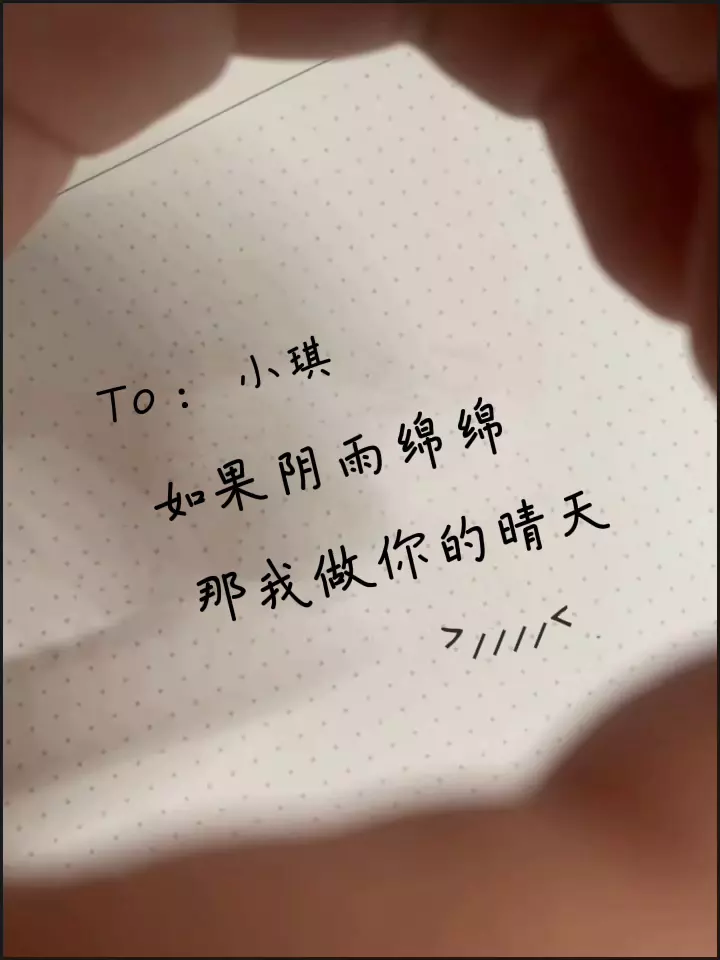 TO: 小琪
如果阴雨绵绵
那我做你的晴天
>////<